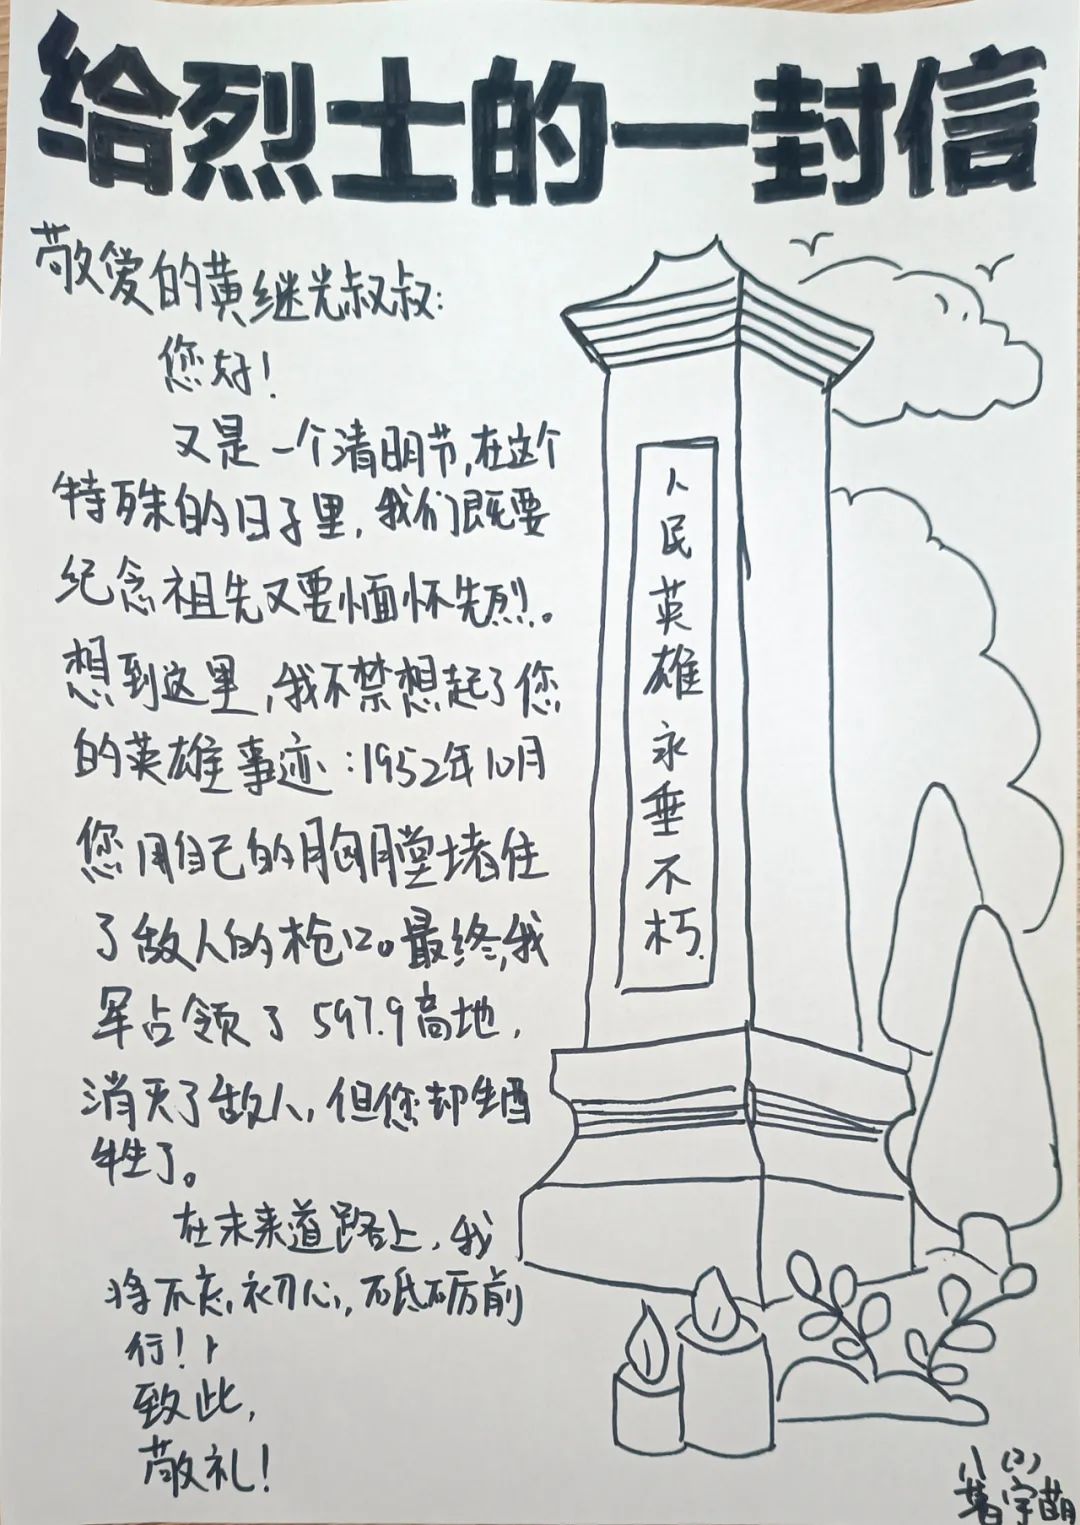 给烈士的一封信
敬爱的黄继光叔叔:
您好!
又是一个清明节,在这个
特殊的日子里,我们既要
纪念祖先又要缅怀先烈。
想到这里,我不禁想起了您
的英雄事迹:1952年10月
您用自己的胸膛堵住
了敌人的枪口。最终,我
军占领了597.9高地,
消灭了敌人,但您却牺
牲了。
在未来道路上,我
将不忘初心,砥砺前
行!
致此,
敬礼!
人民英雄永垂不朽.
八(2)